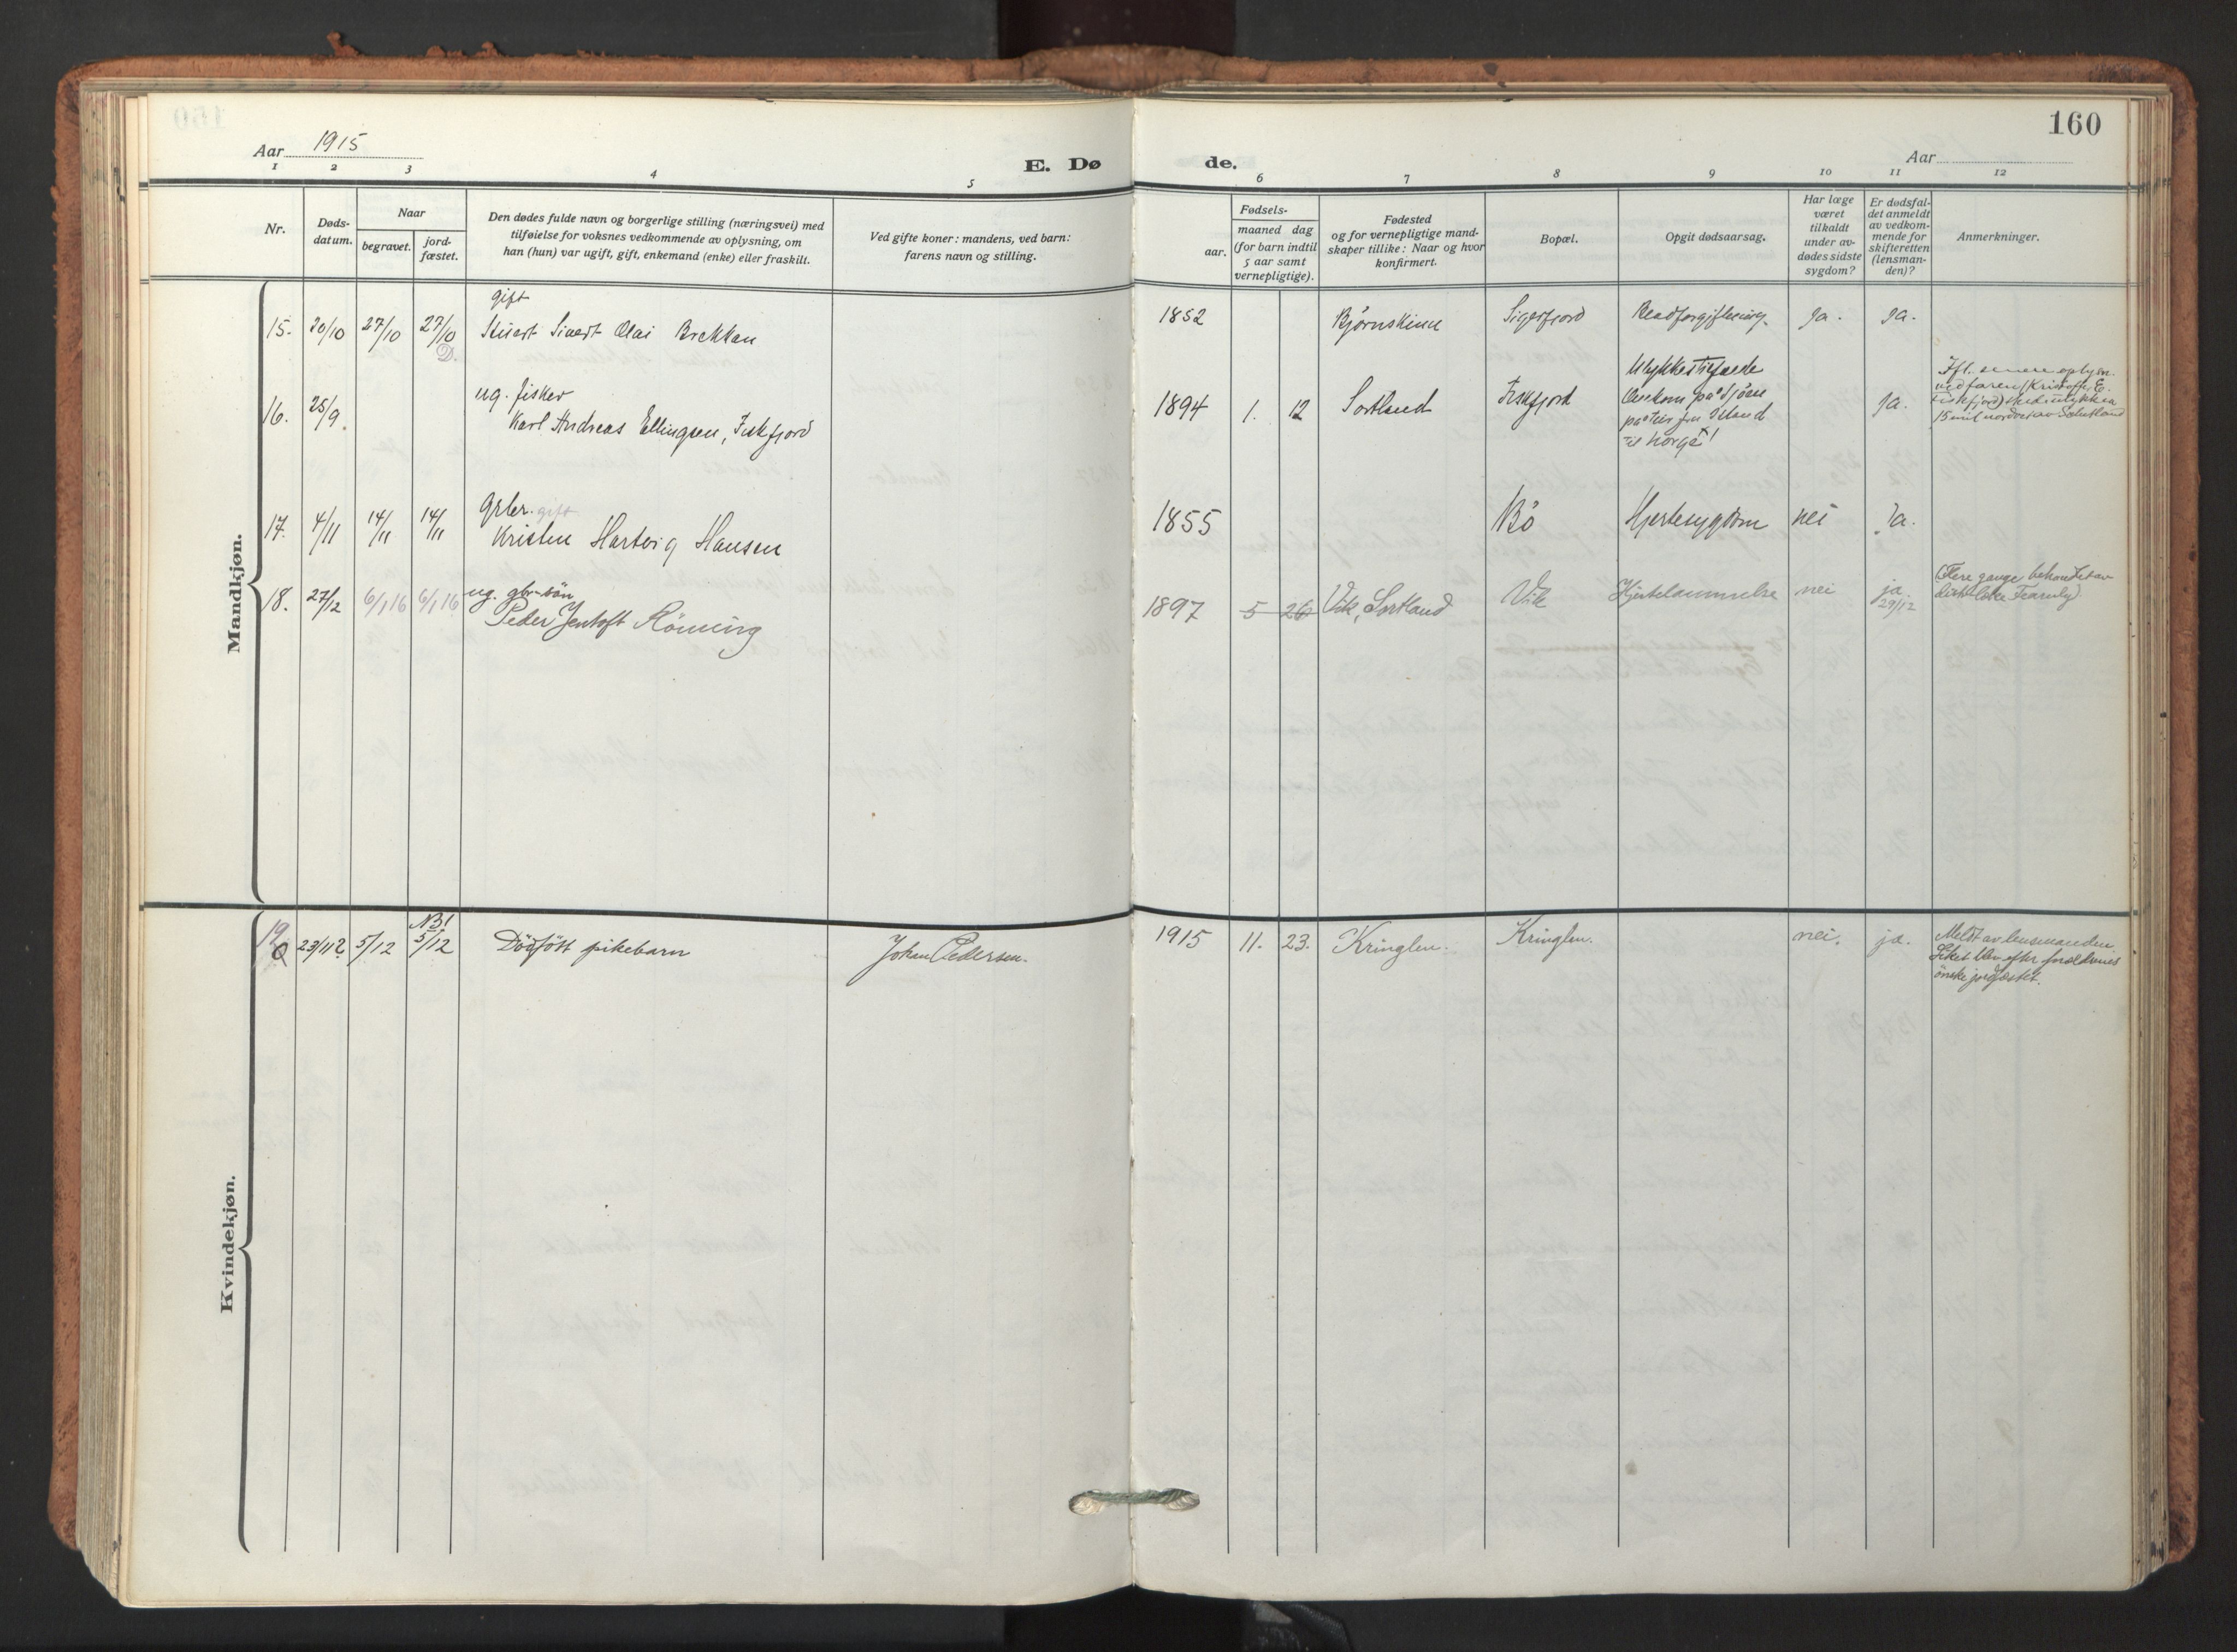 160
Aar 1915
E. Dø
de.
Aar
1 2 3 4 5
6 7 8 9 10 11 12
Nr.
Døds-
datum.
Naar
begravet.
jord-
fæstet.
Den dødes fulde navn og borgerlige stilling (næringsvei) med
tilføielse for voksnes vedkommende av oplysning, om
han (hun) var ugift, gift, enkemand (enke) eller fraskilt.
Ved gifte koner: mandens, ved barn:
farens navn og stilling.
Fødsels-
aar.
maaned dag
(for barn indtil
5 aar samt
vernepligtige).
Fødested
og for vernepligtige mand-
skaper tillike: Naar og hvor
konfirmert.
Bopæl.
Opgit dødsaarsag.
Har læge
været
tilkaldt
under av-
dødes sidste
sygdom?
Er dødsfal-
det anmeldt
av vedkom-
mende for
skifteretten
(lensman-
den)?
Anmerkninger.
Mandkjøn.
gift
15. 20/10 27/10 27/10 Sivert Olai Brekkan 1852 Bjørnskinn Sigerfjord Blodforgiftning. Ja. Ja.
D.
ug. fisker
16. 25/9. Karl Andreas Ellingsen, Fiskfjord 1894 1. 12 Sortland Fiskfjord Ja.
Ulykkestilfælde
Omkom paa Sjøen
paa Tur fra Island
til Norge!
Ifl. senere oplysn.
ved faren (Kristoffer E.
Fiskfjord) sked ulykken
15 mil nordost av Schetland
Grbr. gift
17. 4/11 14/11 14/11 Kristen Hartvig Hansen 1855 Bö Hjertesygdom nei Ja.
ug. gbr-sön
18. 27/12 6/1 16 6/1 16 Peder Jentoft Rönning 1897 5 26 Vik, Sortland Vik Hjertelammelse nei ja
29/12
(Flere gange behandlet av
distr.læke Fearnly)
Kvindekjøn.
NB!
19 0 23/11? 5/12 5/12 Dödfött pikebarn Johan Pedersen. 1915 11. 23. Kringlen. Kringlen. nei. ja.
Meldt av lensmanden
Liket blev efter forældrenes
önske jordfæstet.